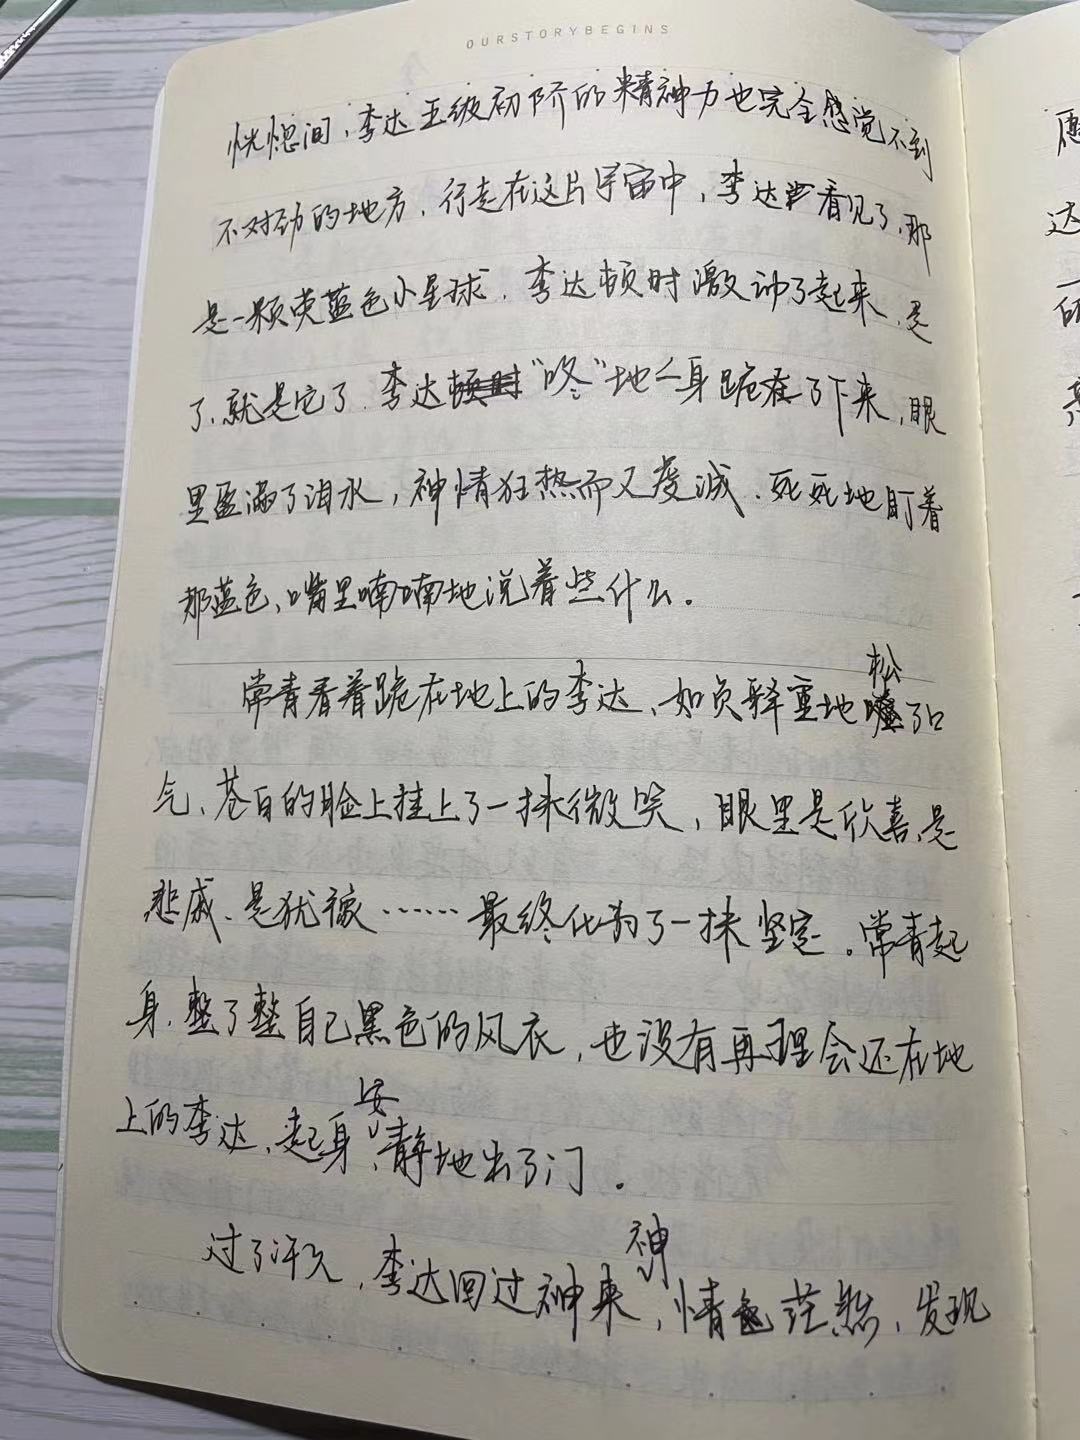 OURSTORYBEGINS
恍惚间，李达五级初阶的精神力也完全感觉不到
不对劲的地方，行走在这片宇宙中，李达看见了，那
是一颗荧蓝色小星球，李达顿时激动了起来，是
了，就是它了，李达"咚"地全身跪了下来，眼
里盈满了泪水，神情狂热而又虔诚，死死地盯着
那蓝色，嘴里喃喃地说着些什么。
常青看着跪在地上的李达，如负释重地松了口
气，苍白的脸上挂上了一抹微笑，眼里是欣喜，是
悲戚，是犹豫……最终化为了一抹坚定。常青起
身，整了整自己黑色的风衣，也没有再理会还在地
上的李达，起身，安静地出了门。
过了许久，李达回过神来，神情茫然，发现
愿
达
的